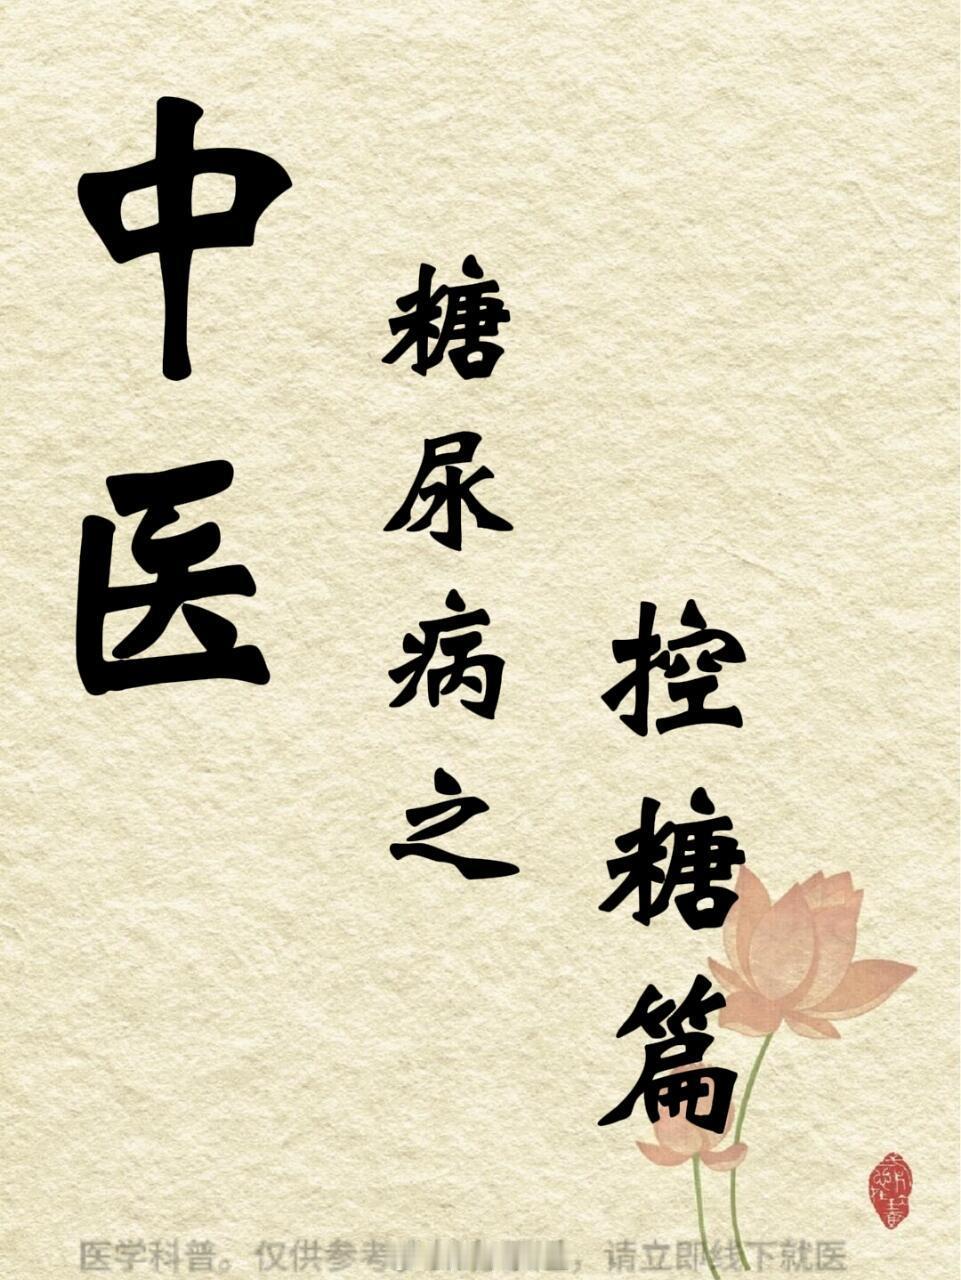 中医
糖尿病之
控糖篇
医学科普。仅供参考，请立即线下就医